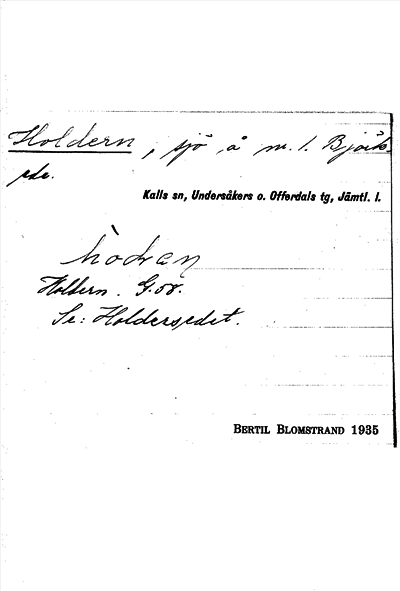 Holdern, sjö å m. l. Björk
ede.
Kalls sn, Undersåkers o. Offerdals tg, Jämtl. l.
hòdṛen
Holbern. G.ör.
Se: Holdersedet.
BERTIL BLOMSTRAND 1935